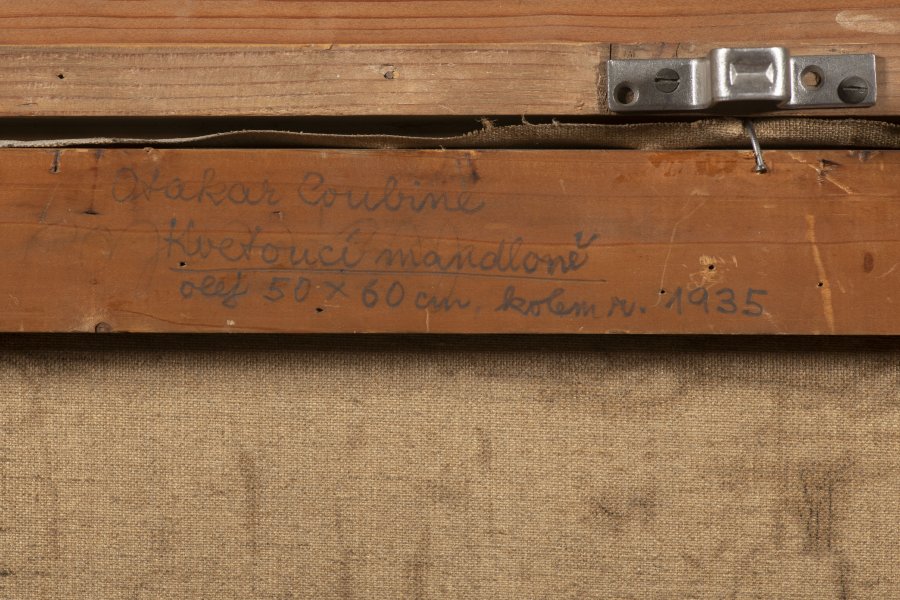 Otakar Coubine
Kvetoucí mandloně
olej 50 x 60 cm, kolem r. 1935